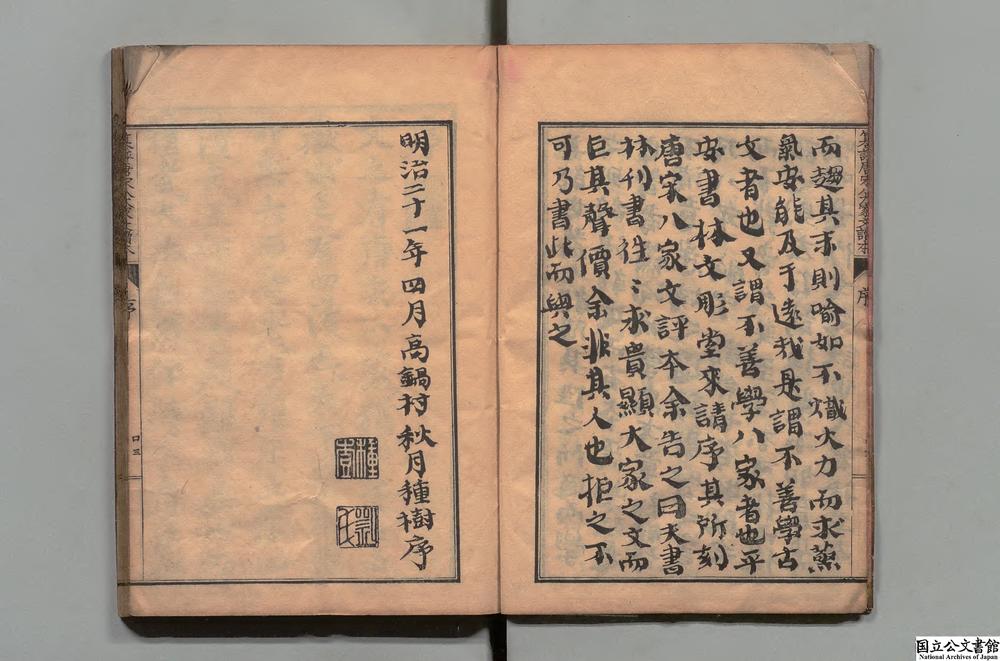 而趨其末則喻如不熾火力而求蒸
氣安能及于遠哉是謂不善學古
文者也又謂不善學八家者也平
安書林文彫堂來請序其所刻
唐宋八家文評本余告之曰夫書
林刊書往〻求貴顯大家之文而
巨其聲價余非其人也拒之不
可乃書此而與之
序
明治二十一年四月高鍋村秋月種樹序
序
口三
国立公文書館
National Archives of Japan